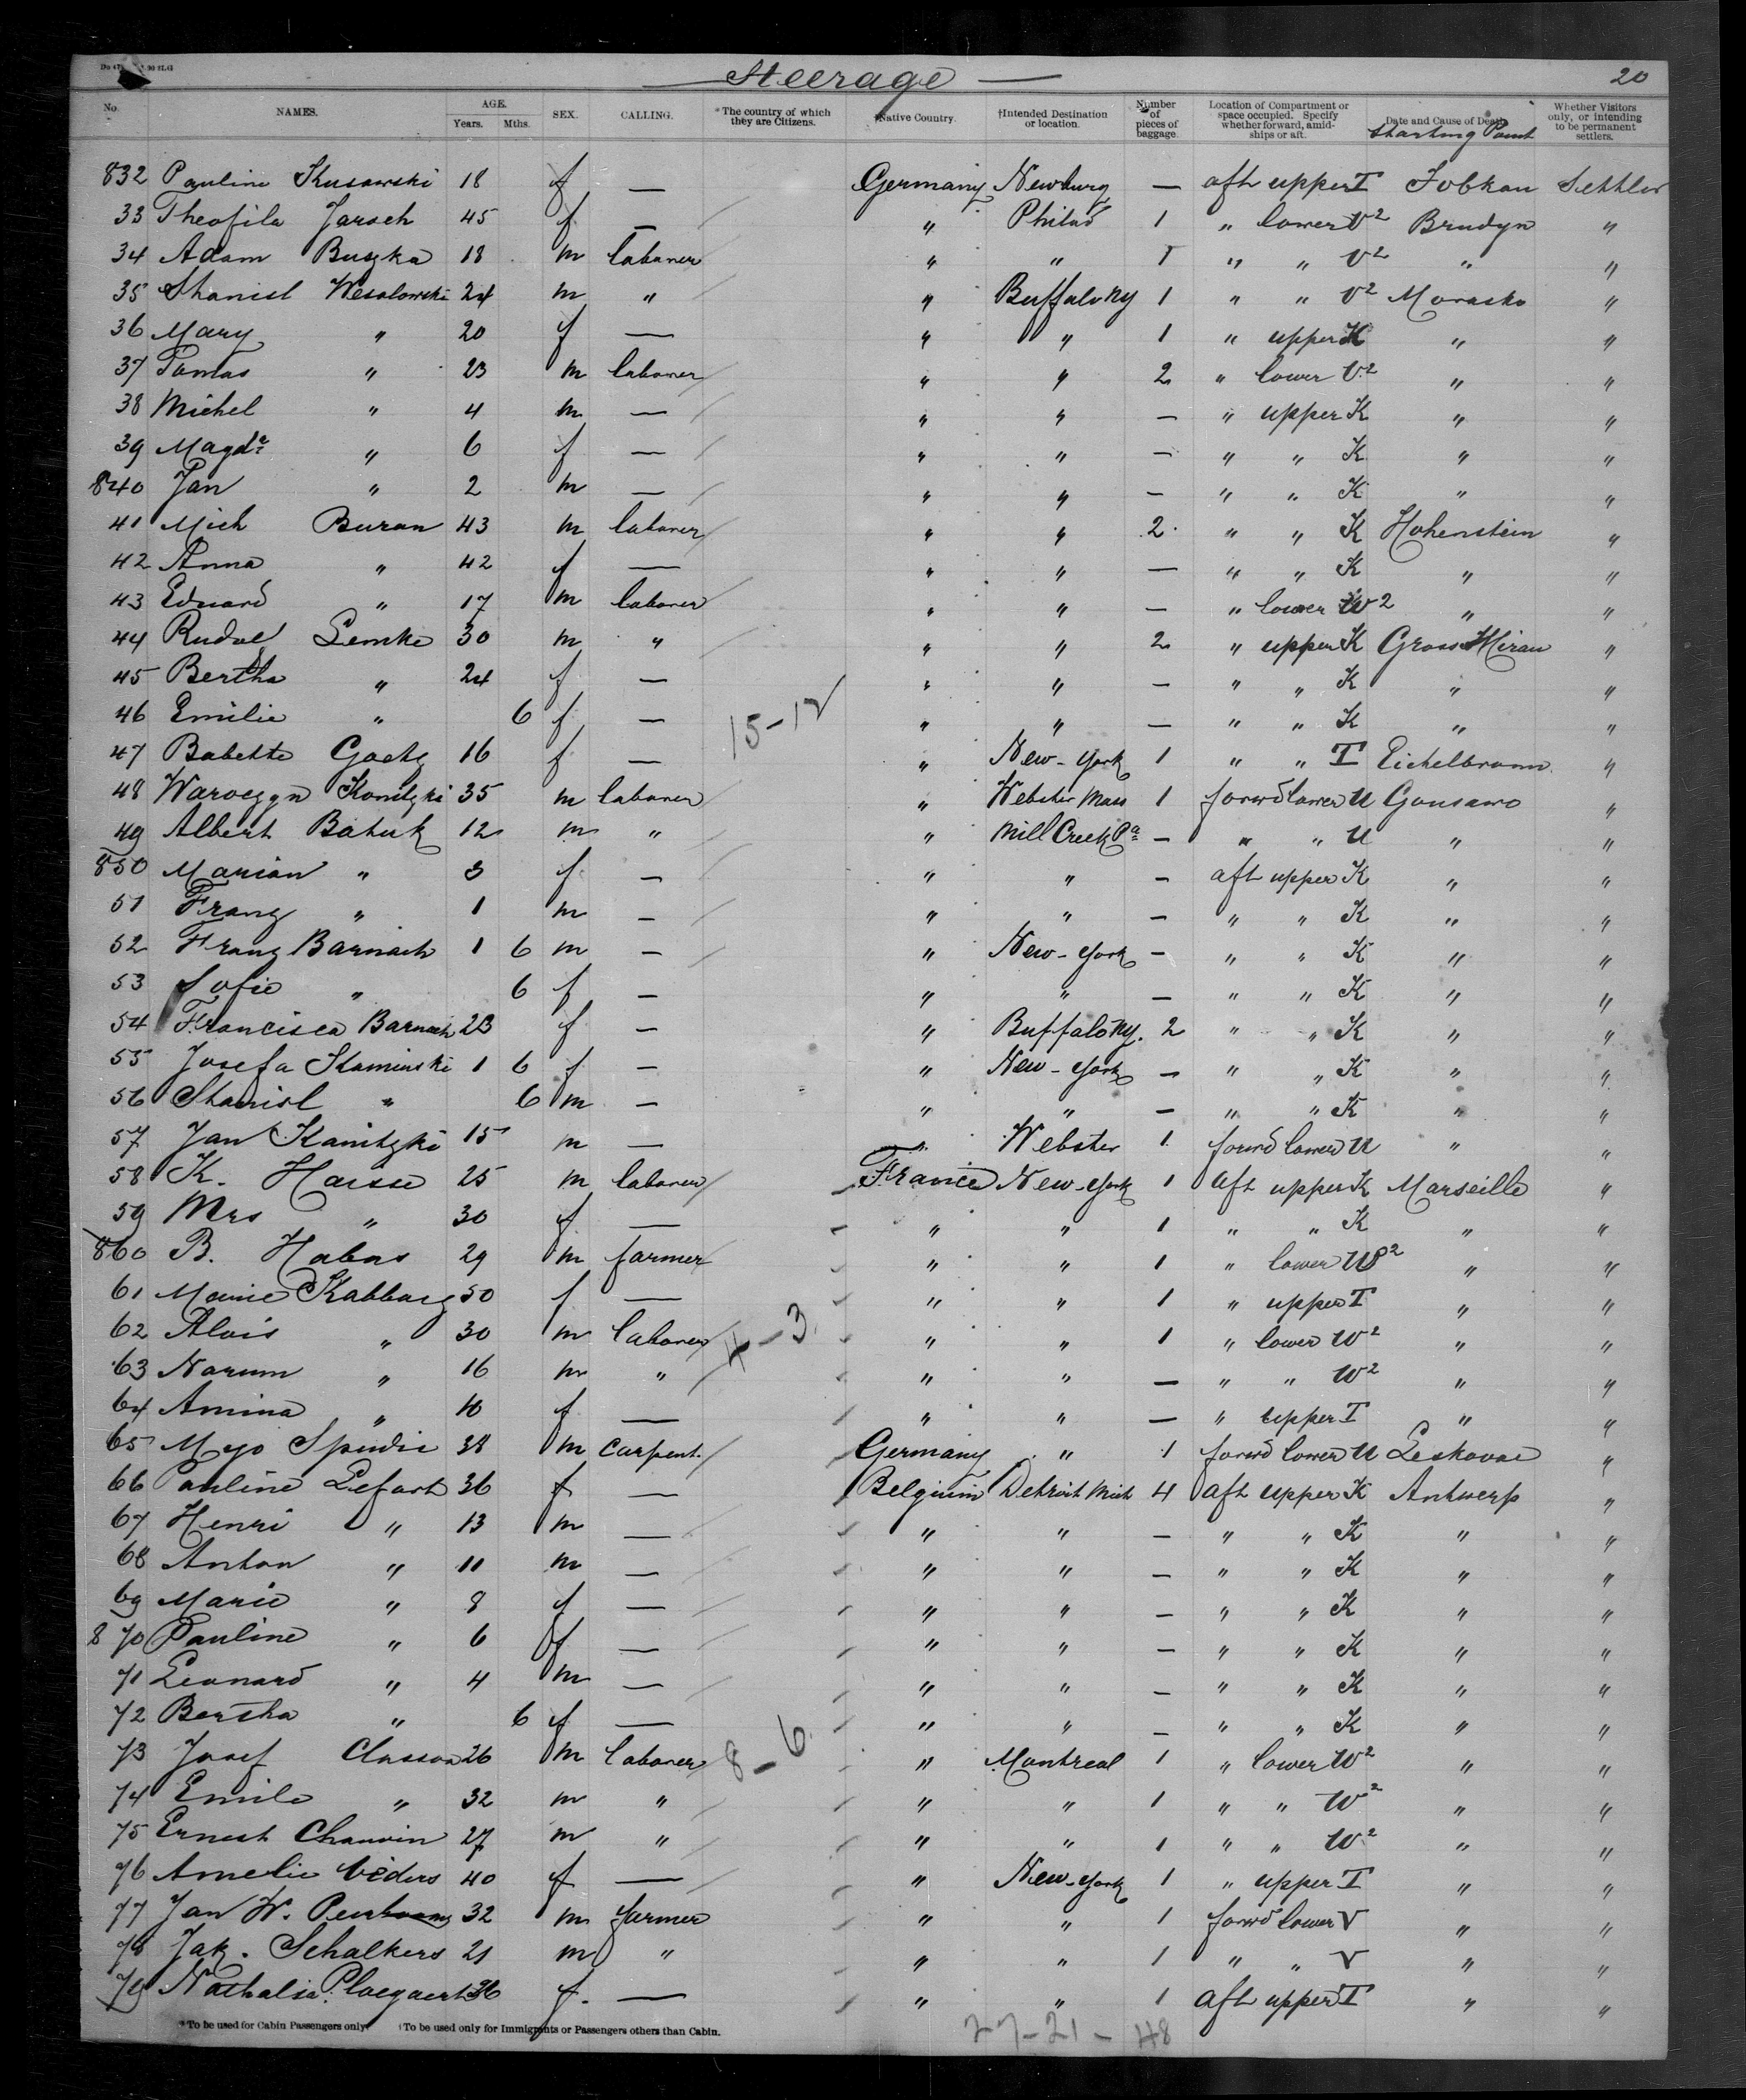 Steerage 20
No. NAMES. AGE. Years. Mths. SEX. CALLING. *The country of which they are Citizens. †Native Country. †Intended Destination or location. Number of pieces of baggage. Location of Compartment or space occupied. Specify whether forward, amidships or aft. Date and Cause of Death Starting Point Whether Visitors only, or intending to be permanent settlers.
832 Pauline 18 f — Germany Newburg — aft upper T Settler
33 Theofila Jarsch 45 f — " Philad 1 " lower V2 Brudyn "
34 Adam Buszka 18 m laborer " " 1 " " V2 " "
35 Stanisl Wesolowski 24 m " " Buffalo NY 1 " " V2 Morasko "
36 Mary " 20 f — " " 1 " upper K " "
37 Tomas " 23 m laborer " " 2 " lower V2 " "
38 Michel " 4 m — " " — " upper K " "
39 Magda " 6 f — " " — " " K " "
840 Jan " 2 m — " " — " " K " "
41 Mich Buran 43 m laborer " " 2 " " K Hohenstein "
42 Anna " 42 f — " " — " " K " "
43 Eduard " 17 m laborer " " — " lower W2 " "
44 Rudol Lemke 30 m " " " 2 " upper K Gross "
45 Bertha " 24 f — " " — " " K " "
46 Emilie " 6 f — 15-12 " " — " " K " "
47 Babette Goetz 16 f — " New-York 1 " " T Eichelbronn "
48 Konitzki 35 m laborer " Webster Mass 1 forwd lower U Gonsawo "
49 Albert Batuk 12 m " " Mill Creek Pa — " " U " "
850 Marian " 3 f — " " — aft upper K " "
51 Franz " 1 m — " " — " " K " "
52 Franz Barnach 1 6 m — " New-York — " " K " "
53 Sofie " 6 f — " " — " " K " "
54 Francisca Barnach 23 f — " Buffalo NY. 2 " " K " "
55 Josefa Kaminski 1 6 f — " New-York — " " K " "
56 Stanisl " 6 m — " " — " " K " "
57 Jan Kanitzki 15 m — " Webster 1 forwd lower U " "
58 K. 25 m laborer France New-York 1 aft upper K Marseille "
59 Mrs " 30 f — " " 1 " " K " "
860 B. Habas 29 m farmer " " 1 " lower " "
61 Marie Kabbaz 50 f — " " 1 " upper T " "
62 Alois " 30 m laborer 4-3 " " 1 " lower W2 " "
63 Narum " 16 m " " " — " " W2 " "
64 Amina " 10 f — " " — " upper T " "
65 Spudic 38 m carpent. Germany " 1 forwd lower U Leskovac "
66 Pauline Lefort 36 f — Belgium Detroit Mich 4 aft upper K Antwerp "
67 Henri " 13 m — " " — " " K " "
68 Anton " 11 m — " " — " " K " "
69 Marie " 8 f — " " — " " K " "
870 Pauline " 6 f — " " — " " K " "
71 Leonard " 4 m — " " — " " K " "
72 Bertha " 6 f — " " — " " K " "
73 Josef Classon 26 m laborer 8-6 " Montreal 1 " lower W2 " "
74 Emile " 32 m " " " 1 " " W2 " "
75 Ernest Chauvin 27 m " " " 1 " " W2 " "
76 Amelie Viders 40 f — " New-York 1 " upper T " "
77 Jan W. 32 m farmer " " 1 forwd lower V " "
78 Jak. Schalkers 21 m " " " 1 " " V " "
79 Nathalia Plaegaert 36 f. — " " 1 aft upper T " "
*To be used for Cabin Passengers only. †To be used only for Immigrants or Passengers others than Cabin.
27-21-48